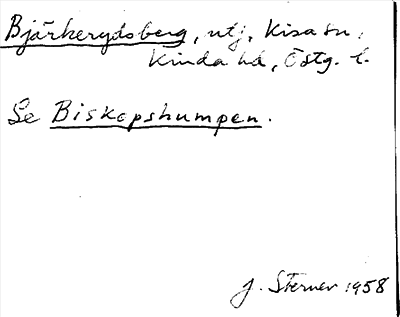 Bjärkerydsberg, utj, Kisa sn,
Kinda hd, Östg. l.
Se Biskopshumpen.
J. Sterner 1958